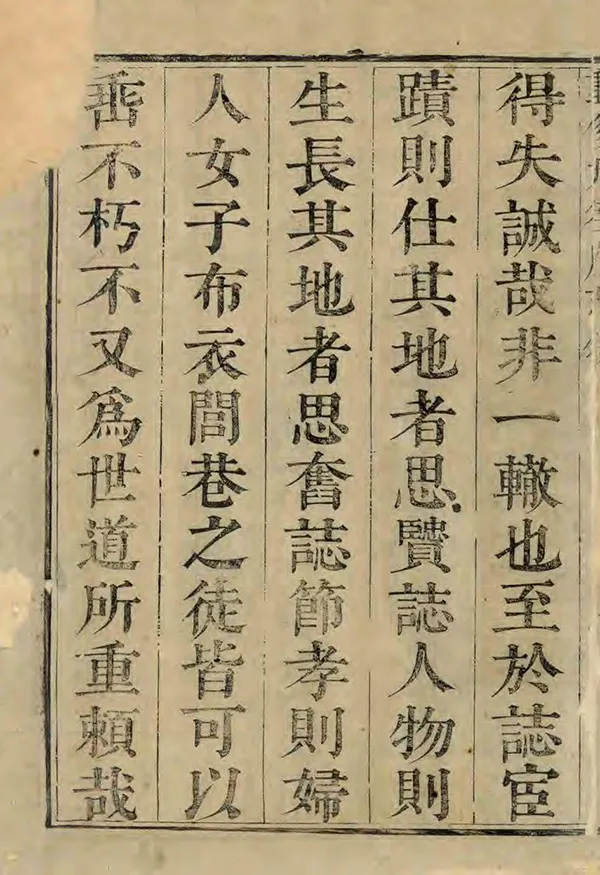 得失誠哉非一轍也至於誌宦
蹟則仕其地者思贒誌人物則
生長其地者思奮誌節孝則婦
人女子布衣閭巷之徒皆可以
垂不朽不又為世道所重賴哉